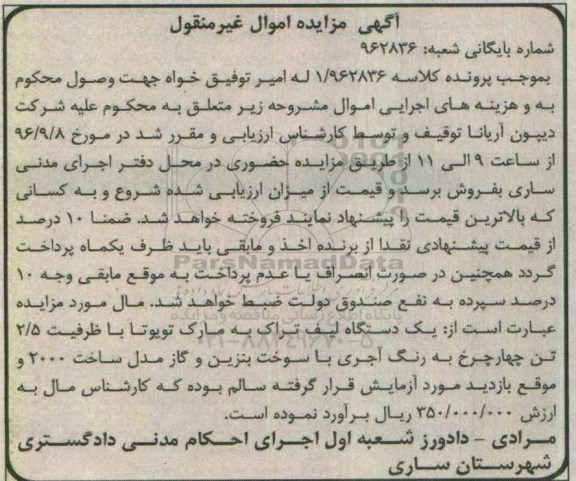 آگهی مزایده اموال غیرمنقول
شماره بایگانی شعبه: ۹۶۲۸۳۶
بموجب پرونده کلاسه ۱/۹۶۲۸۳۶ له امیر توفیق خواه جهت وصول محکوم
به و هزینه های اجرایی اموال مشروحه زیر متعلق به محکوم علیه شرکت
دیپون آریانا توقیف و توسط کارشناس ارزیابی و مقرر شد در مورخ ۹۶/۹/۸
از ساعت ۹ الی ۱۱ از طریق مزایده حضوری در محل دفتر اجرای مدنی
ساری بفروش برسد و قیمت از میزان ارزیابی شده شروع و به کسانی
که بالاترین قیمت را پیشنهاد نمایند فروخته خواهد شد. ضمنا ۱۰ درصد
از قیمت پیشنهادی نقدا از برنده اخذ و مابقی باید ظرف یکماه پرداخت
گردد همچنین در صورت انصراف یا عدم پرداخت به موقع مابقی وجه ۱۰
درصد سپرده به نفع صندوق دولت ضبط خواهد شد. مال مورد مزایده
عبارت است از: یک دستگاه لیف تراک به مارک تویوتا با ظرفیت ۲/۵
تن چهارچرخ به رنگ آجری با سوخت بنزین و گاز مدل ساخت ۲۰۰۰ و
موقع بازدید مورد آزمایش قرار گرفته سالم بوده که کارشناس مال به
ارزش ۳۵۰/۰۰۰/۰۰۰ ریال برآورد نموده است.
مرادی - دادورز شعبه اول اجرای احکام مدنی دادگستری
شهرستان ساری
ParsNamadData
پایگاه اطلاع رسانی مناقصه و مزایده
۰۲۱-۸۸۳۴۹۶۷۰-۵